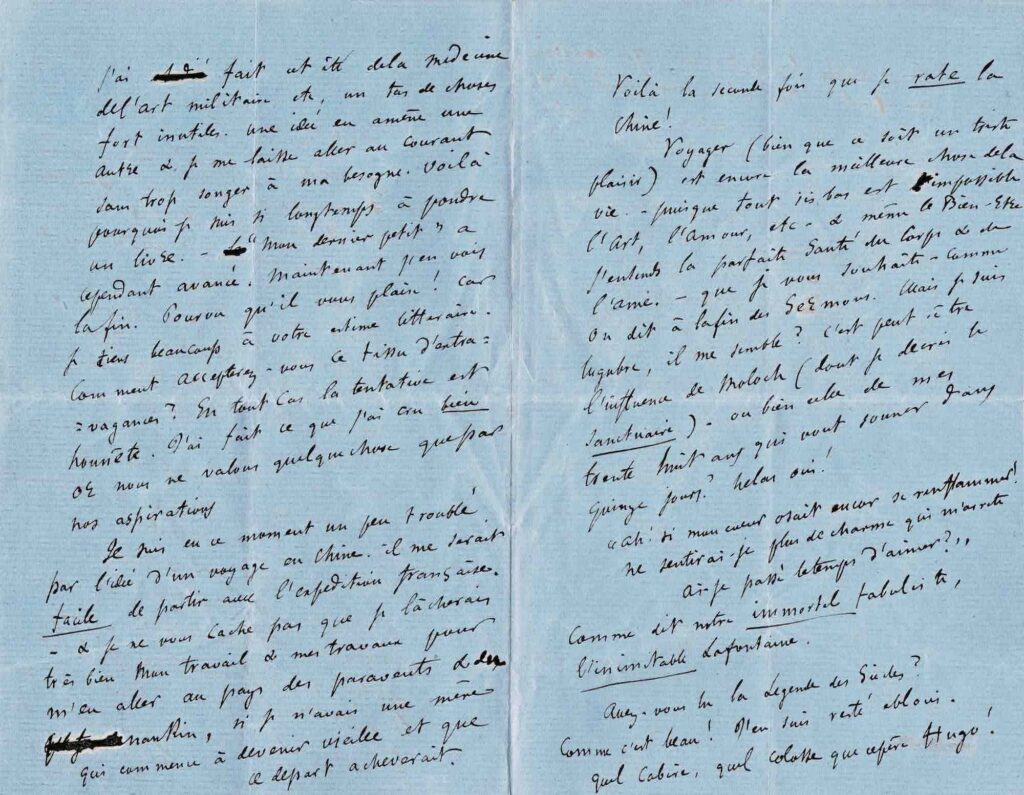 J'ai fait cet été de la médecine
de l'art militaire etc, un tas de choses
fort inutiles. une idée en amène une
autre & je me laisse aller au courant
sans trop songer à ma besogne. Voilà
pourquoi je suis si longtemps à pondre
un livre. – "Mon dernier petit" a
cependant avancé. Maintenant j'en vois
la fin. Pourvu qu'il vous plaise! car
je tiens beaucoup à votre estime littéraire.
Comment accepterez-vous ce tissu d'extra=
=vagances? En tout cas la tentative est
honnête. J'ai fait ce que j'ai cru bien
or nous ne valons quelque chose que par
nos aspirations
Je suis en ce moment un peu troublé
par l'idée d'un voyage en Chine. il me serait
facile de partir avec l'expédition française.
– & je ne vous cache pas que je lâcherais
très bien mon travail & mes travaux pour
m'en aller au pays des paravents & du
nankin, si je n'avais une mère
qui commence à devenir vieille et que
ce départ acheverait.
Voilà la seconde fois que je rate la
Chine!
Voyager (bien que ce soit un triste
plaisir) est encore la meilleure chose de la
vie. – puisque tout ici bas est impossible
l'Art, l'Amour, etc – & même le Bien-Etre
J'entends la parfaite Santé du Corps & de
l'âme. – que je vous souhaite – comme
on dit à la fin des Sermons. Mais je suis
lugubre, il me semble? c'est peut-être
l'influence de Moloch (dont je décris le
sanctuaire) – ou bien celle de mes
trente huit ans qui vont sonner dans
quinze jours? helas oui!
"Ah! si mon cœur osait encor se renflammer!
ne sentirai-je plus de charme qui m'arrête
ai-je passé le temps d'aimer?"
Comme dit notre immortel fabuliste,
l'inimitable Lafontaine.
Avez-vous lu la Légende des Siècles?
Comme c'est beau! J'en suis resté ébloui.
quel Cabire, quel colosse que ce père Hugo!